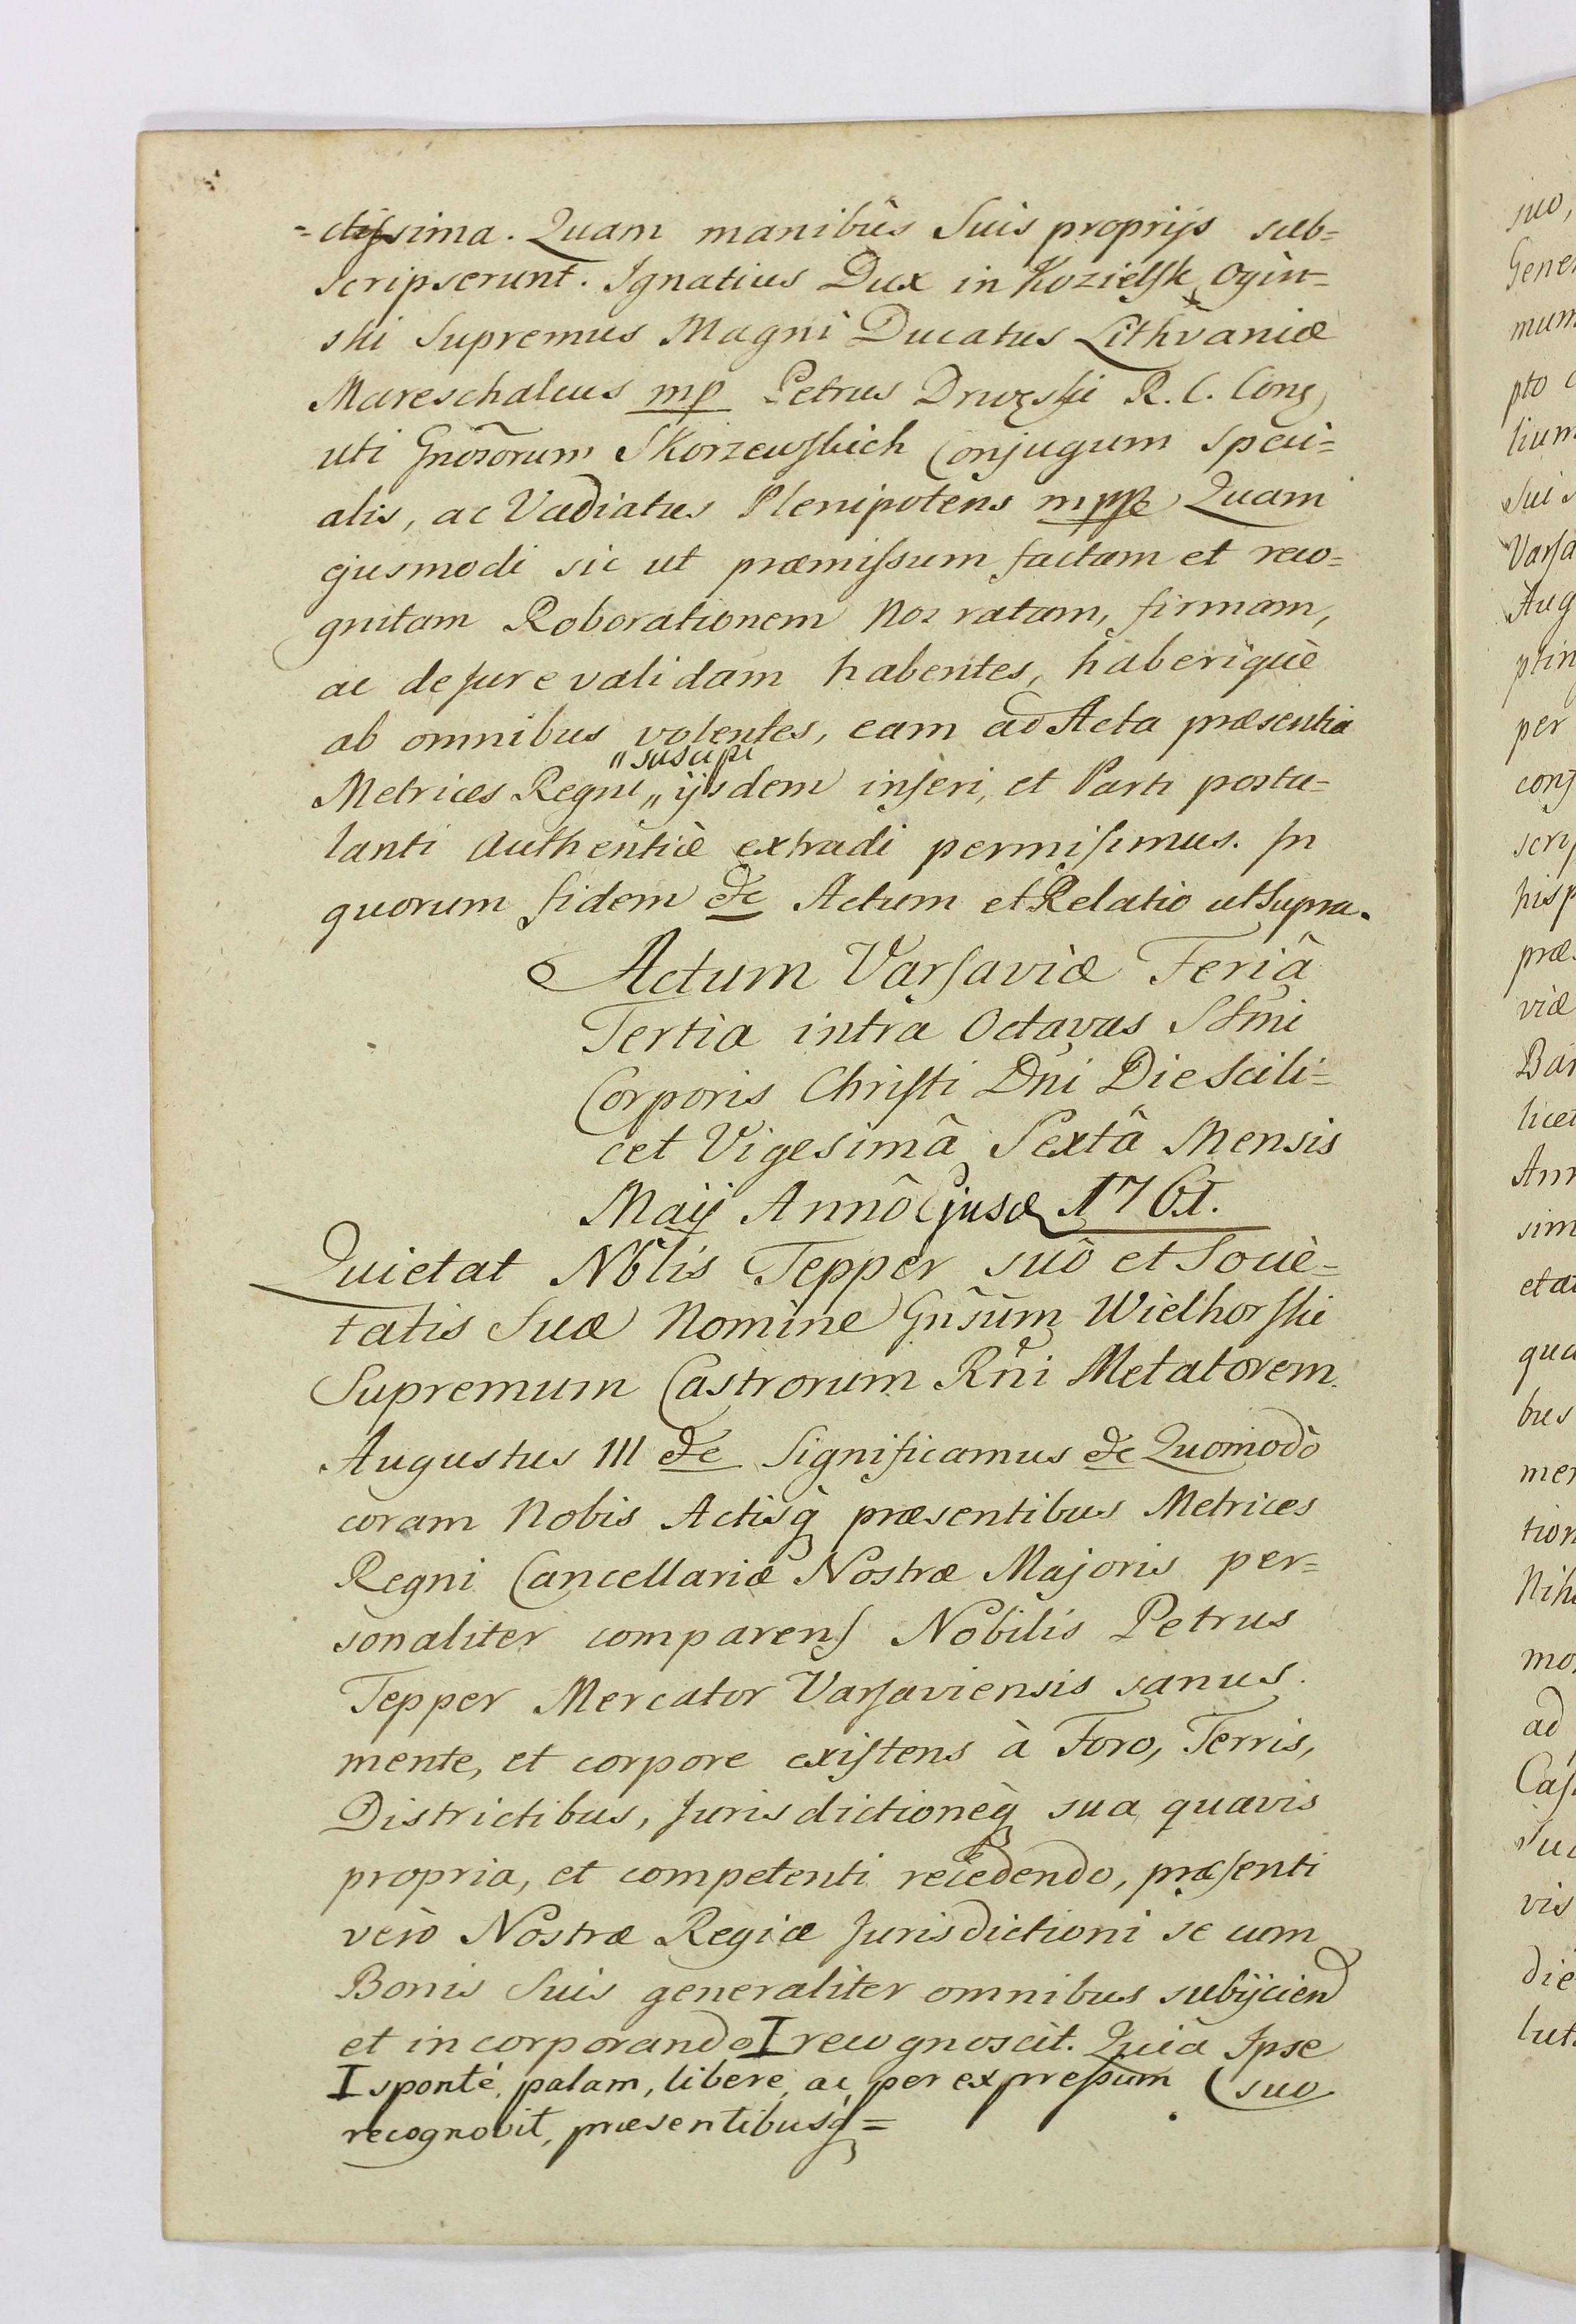 =ctissima. Quam manibus Suis proprijs sub=
scripserunt. Ignatius Dux in Kozielsk Ogin=
ski Supremus Magni Ducatus Lithvaniæ
Mareschalcus mp Petrus Drwęski R. C. Cons
uti Gnosorum Skorzewskich Conjugum speci=
alis, ac Vadiatus Plenipotens mpp Quam
ejusmodi sic ut præmissum factam et reco=
gnitam Roborationem Nos ratam, firmam,
ac de Jure validam habentes, haberiquè
ab omnibus volentes, eam ad Acta præsentia
"suscipi
Metrices Regni " ijsdem inseri, et Parti postu=
lanti Authenticè extradi permisimus. In
quorum fidem etc Actum et Relatio ut Supra.
Actum Varsaviæ Feriâ
Tertia intra Octavas SSmi
Corporis Christi Dni Die Scili=
cet Vigesimâ Sextâ Mensis
Maij Annô Ejusd 1761.
Quietat Nblis Tepper suô et Socie=
tatis Suæ Nomine Gnsum Wielhorski
Supremum Castrorum Rni Metatorem.
Augustus III etc Significamus etc Quomodò
coram Nobis Actisq præsentibus Metrices
Regni Cancellariæ Nostræ Majoris per=
sonaliter comparens Nobilis Petrus
Tepper Mercator Varsaviensis sanus
mente, et corpore existens à Foro, Terris,
Districtibus, Jurisdictioneq sua quavis
propria, et competenti recedendo, præsenti
verò Nostræ Regiæ Jurisdictioni se cum
Bonis Suis generaliter omnibus subijciend
et incorporando I recognoscit. Quia Ipse
I sponté, palam, libere, ac per expressum (suo
recognovit, præsentibusq =
suo,
Gener
mum
pto c
lium
Sui s
Varsa
Aug
ptin
per
cons
scrip
hisp
præ
viæ
Bar
licet
Ann
sim
et a
qua
bus
mer
tion
Nih
mo
ad
Cas
Su
vis
die
lut